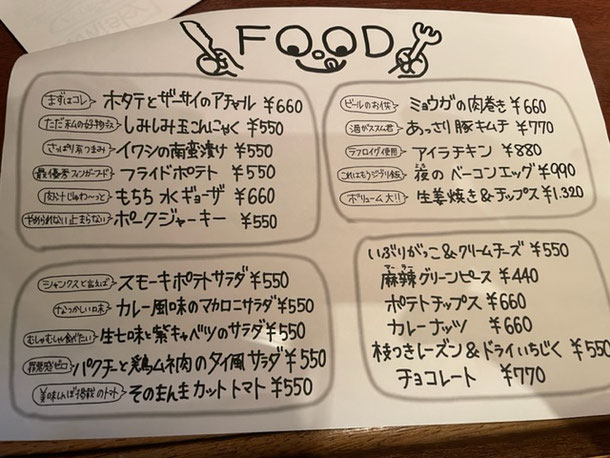 FOOD
まずはコレ ホタテとザーサイのアチャル ¥660
ただ私の好物です しみしみ玉こんにゃく ¥550
さっぱり系つまみ イワシの南蛮漬け ¥550
最優秀フィンガーフード フライドポテト ¥550
肉汁じゅわ〜っと もちもち水ギョーザ ¥660
やめられない止まらない ポークジャーキー ¥550
シャンクスと言えば スモーキポテトサラダ ¥550
なつかしい味 カレー風味のマカロニサラダ ¥550
むしゃむしゃ食べたい 生七味と紫キャベツのサラダ ¥550
罪悪感ゼロ パクチーと鶏ムネ肉のタイ風サラダ ¥550
美味しんぼ掲載のトマト そのまんまカットトマト ¥550
ビールのお供 ミョウガの肉巻き ¥660
酒がススム君 あっさり豚キムチ ¥770
ラフロイグ使用 アイラチキン ¥880
これはもうジブリ飯 夜のベーコンエッグ ¥990
ボリューム大!! 生姜焼き&チップス ¥1,320
いぶりがっこ&クリームチーズ ¥550
麻辣グリーンピース ¥440
ポテトチップス ¥660
カレーナッツ ¥660
枝つきレーズン&ドライいちじく ¥550
チョコレート ¥770